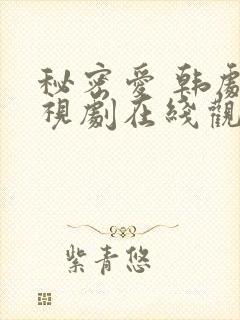 秘密愛 韓劇
視劇在綫觀
紫青悠